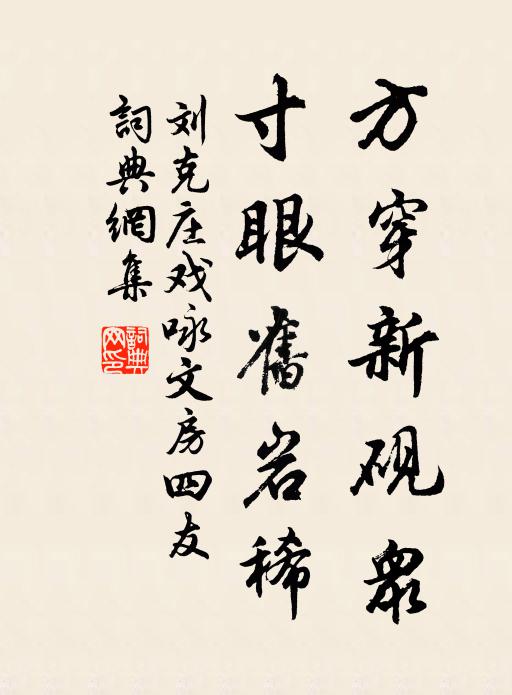 方穿新砚眾
寸眼舊岩稀
刘克庄戏咏文房四友
詞典網集
詞典网印